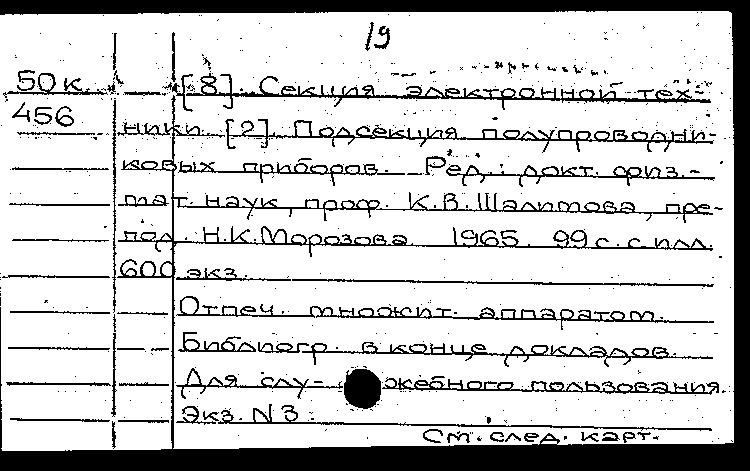 19
50к. [8]. Секция электронной тех-
456 ники [2]. Подсекция полупроводни-
ковых приборов. Ред.: докт. физ.-
мат. наук, проф. К.В.Шалимова, пре-
под. Н.К.Морозова 1965. 99 с. с илл.
600 экз.
Отпеч. множит. аппаратом.
Библиогр. в конце докладов.
Для слу- жебного пользования.
Экз. N 3.
См. след. карт.